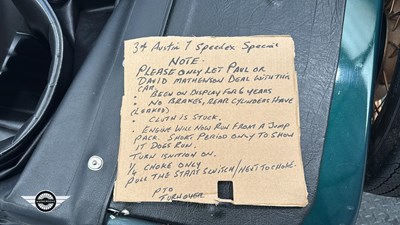 34 Austin 7 Speedex Special
NOTE.
PLEASE ONLY LET PAUL OR
DAVID MATHEWSON DEAL WITH THIS
CAR.
• BEEN ON DISPLAY FOR 6 YEARS
• NO BRAKES, REAR CYLINDERS HAVE
(LEAKED)
• CLUTH IS STUCK.
• ENGINE WILL NOW RUN FROM A JUMP
PACK. SHORT PERIOD ONLY TO SHOW
IT DOES RUN.
TURN IGNITION ON.
1/4 CHOKE ONLY
PULL THE START SWITCH/NEXT TO CHOKE.
PTO
TURNOVER